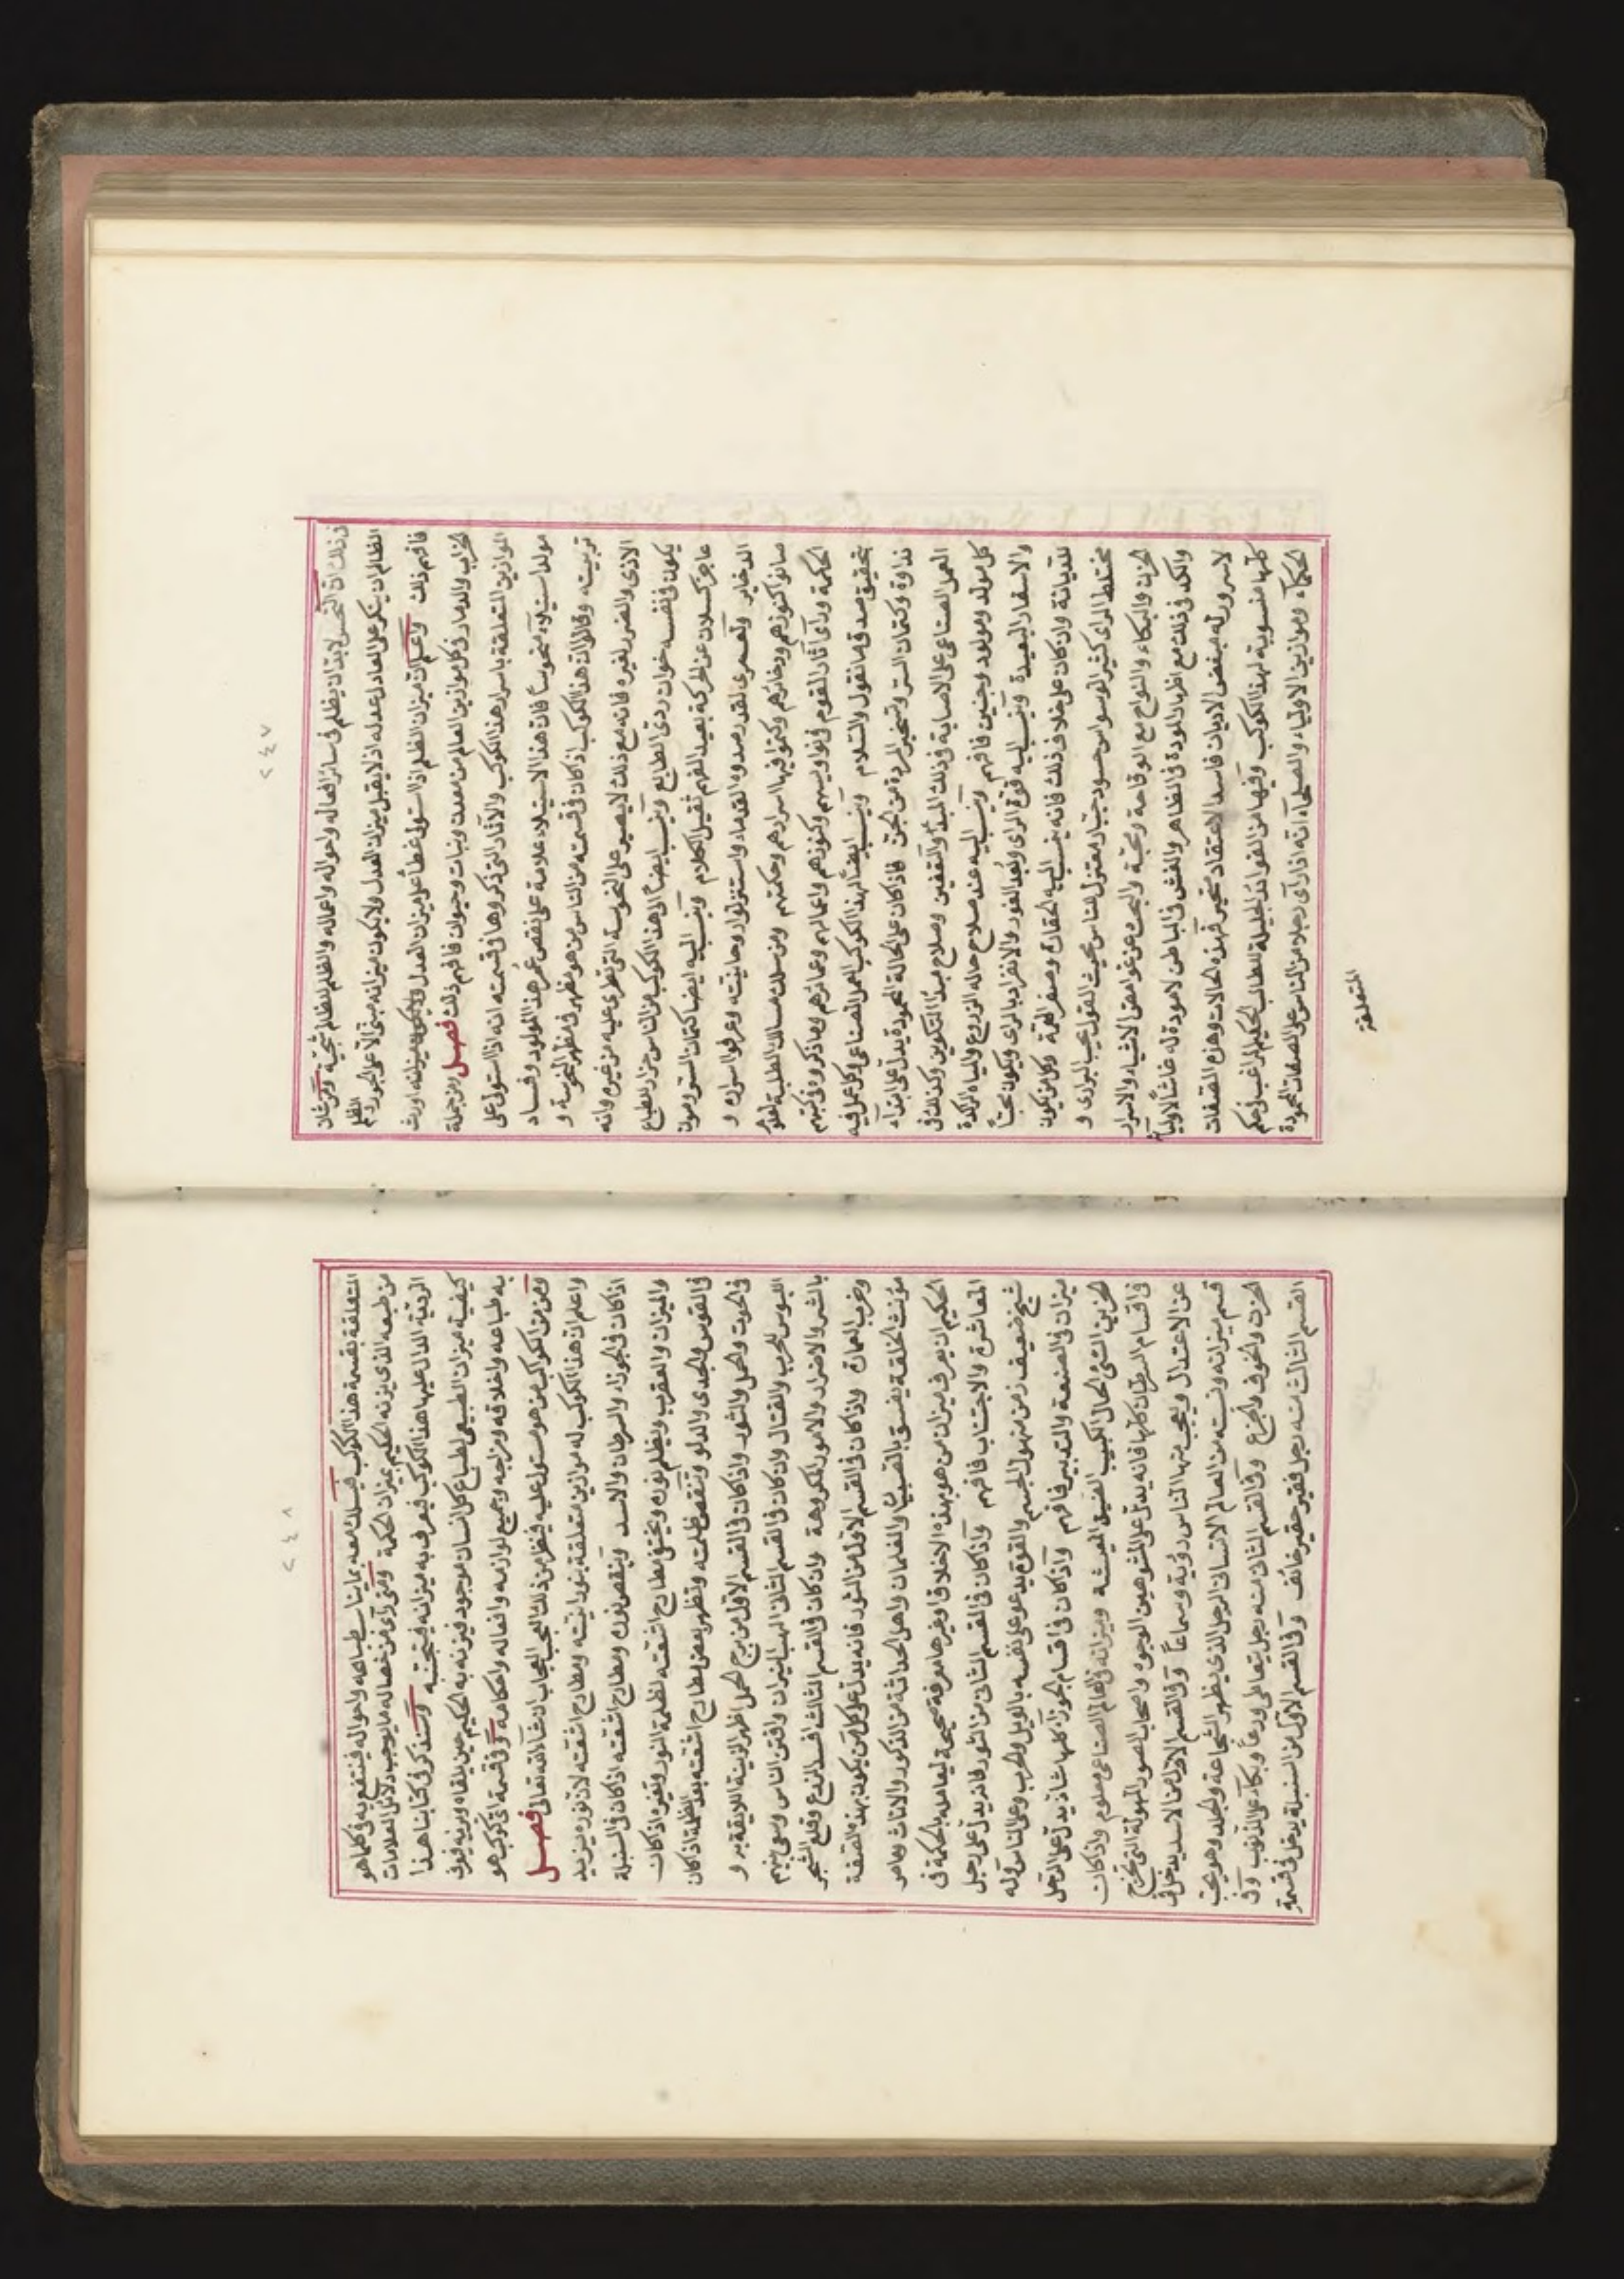 ٢٤٧
ذلك ان النحس لا بد ان يظلم في سائر افعاله واحواله واعماله والظلم للظالم سجية ومن شان
الظالم ان ينكر على العادل عدله اذ لا يقبل ميزان العدل ولا يكون ميزانه مبنى الا على الجور والظلم
فافهم ذلك واعلم ان ميزان الظلم اذا استولى غطا على ميزان العدل
الخراب والدمار في كل موازين العالم من معدن ونبات وحيوان فافهم ذلك فصل ومن جملة
الموازين المتعلقة باسرار هذا الكوكب والاثار التي ذكروها في قسمته انه اذا استولى على
مولد استيلاء منحوسا فان هذا الاستيلاء علامة على نقص عمر هذا المولود وفساد
تربيته وقالوا ان هذا الكوكب اذا كان في قسمته من الناس من هو مظهر في مظهر النحوسة و
الاذى والضرر لغيره فانه مع ذلك لا يصبر على النحوسة التي تطرى عليه من غيره وانه
يكون في نفسه خوان ردى الطابع وينسب ايضا الى هذا الكوكب من الناس
عاجز كسلان عن الحركة بعيد الفهم ثقيل الكلام وينسب اليه ايضا كتمان السر وصون
الدخاير ولعمرى لقد رصدوه القدماء واستنزلوا روحانيته وعرفوا اسراره و
صانوا كنوزهم ودخائرهم وكتموا فيها اسرارهم وحكمتهم ومن سلك مسالك الطلبة لعلوم
الحكمة ورأى آثار القوم في نواويسهم وكنوزهم واعمالهم وعمائرهم وما ذكروه في كتبهم
تحقق صدق ما نقول والسلام وينسب ايضا لهذا الكوكب العمل الصناعى وكل عمل فيه
نداوة وكتمان السر وتسخير المردة من الجن فاذا كان على الحالة المحمودة يدل على ابتداء
العمل الصناعى على الاصابة في ذلك المبدا والتعفين وصلاح مبدا التكوين وكذلك في
كل مولد ومولود وجنين فافهم وينسب اليه عند صلاح حاله الزروع والمياه الراكدة
والاسفار البعيدة وينسب اليه قوة الراى وبعد الغور والانفراد بالراى ويكون محبا
للديانة وان كان على خلاف ذلك فانه ينسب اليه الحقارة وصغر الهمة وكل من يكون
مختلط الراى كثير الوسواس حسود جبار معتزل للناس بحيث القول يحب البرارى و
الحزن والبكاء والنواح مع الوقاحة ومحبة والبحث عن غوامض الاشياء والاسرار
والكد في ذلك مع اظهار المودة في الظاهر والغش في الباطن لا مودة له غاشا لاوليائه
لا سرور له مبغض الاديان فاسد الاعتقاد متحير فهذه الحالات وهذه الصفات
كلها منسوبة لهذا الكوكب وفيها من الفوائد الجليلة للطالب الحكيم الراغب في حكم
الحكماء وموازين الاولياء والصلحاء انه اذا رآى رجلا من الناس على الصفات المحمودة
المتعلقة
٢٤٨
المتعلقة بقسمة هذا الكوكب فيسلك معه بما يناسب طباعه واحواله فينتفع به في كلما هو
من طبعه الذى يزنه الحكيم بميزان الحكمة ومتى رآى من خصاله ما يوجب دلائل العلامات
الردية الدال عليها هذا الكوكب فيعرف به ميزانه فيتجنبه وسنذكر في كتابنا هذا
كيفية ميزان الطبيعى لطباع كل انسان موجود فيزنه به الحكيم حين يلقاه ويريه فيعرف
به طباعه واخلاقه ومزاجه وجميع لوازمه وافعاله واحكامه وفي قسمة اى كوكب هو
ومن من الكواكب من هو مستول عليه فينظر من ذلك العجب العجاب ان شاء الله تعالى فصل
واعلم ان هذا الكوكب له موازين متعلقة بنورانيته ومطارح اشعته لان نوره يزيد
اذا كان في الجوزاء والسرطان والاسد وينقص نوره ومطارح اشعته اذا كان في السنبلة
والميزان والعقرب ويظلم نوره ويختفى مطارح اشعته لظلمة النور وتغيره اذا كان
في القوس والجدى والدلو وتنقص ظلمته وتظهر بعض مطارح اشعته بعد الظلمة اذا كان
في الحوت والحمل والثور واذا كان في القسم الاول من برج الحمل اظهر الزينة اللايقة به و
اللبوس للحرب والقتال وان كان في القسم الثالث الهب النيران وافتن الناس وسعى بينهم
بالشر والاضرار والامور المكروهة وان كان في القسم الثالث افسد الزرع وقلع الشجر
وخرب العمارة واذا كان في القسم الاول من الثور فانه يدل على كل من يكون بهذه الصفة
مؤنث الخلقة يفسق بالصبيان والغلمان واهل الحداثة من الذكور والاناث ويامر
الحكيم ان يعرف ميزان من هو بهذه الاخلاق وغيرها معرفة صحيحة ليعامله بالحكمة في
المعاشرة والاجتناب فافهم واذا كان في القسم الثانى من الثور فانه يدل على رجل
شيخ ضعيف زمن مهول الجسم والقوة يدعو على نفسه بالويل والحرب وعلى الناس وله
ميزان في الصنعة والتدبير فافهم واذا كان في اقسام الجوزاء كلها شانه يدل على الرجل
الحزين السئ الحال الكئيب الضيق المعيشة وميزانه في العالم الصناعى معلوم واذا كان
في اقسام السرطان كلها فانه يدل على المشوهين الوجوه واصحاب الصور المهولة التي تخرج
عن الاعتدال ويعجب منها الناس رؤية وسماعا وفي القسم الاول من الاسد يدخل في
قسم ميزانه ونسبته من العالم الانسانى الرجل الذى يظهر الشجاعة والجلد وهو يحب
الحزن والخوف والجزع وفي القسم الثانى منه رجل يتعاطى ورعا وبكاء على الذنوب وفي
القسم الثالث منه رجل فقير حقير خائف وفي القسم الاول من السنبلة يدخل في قسمة